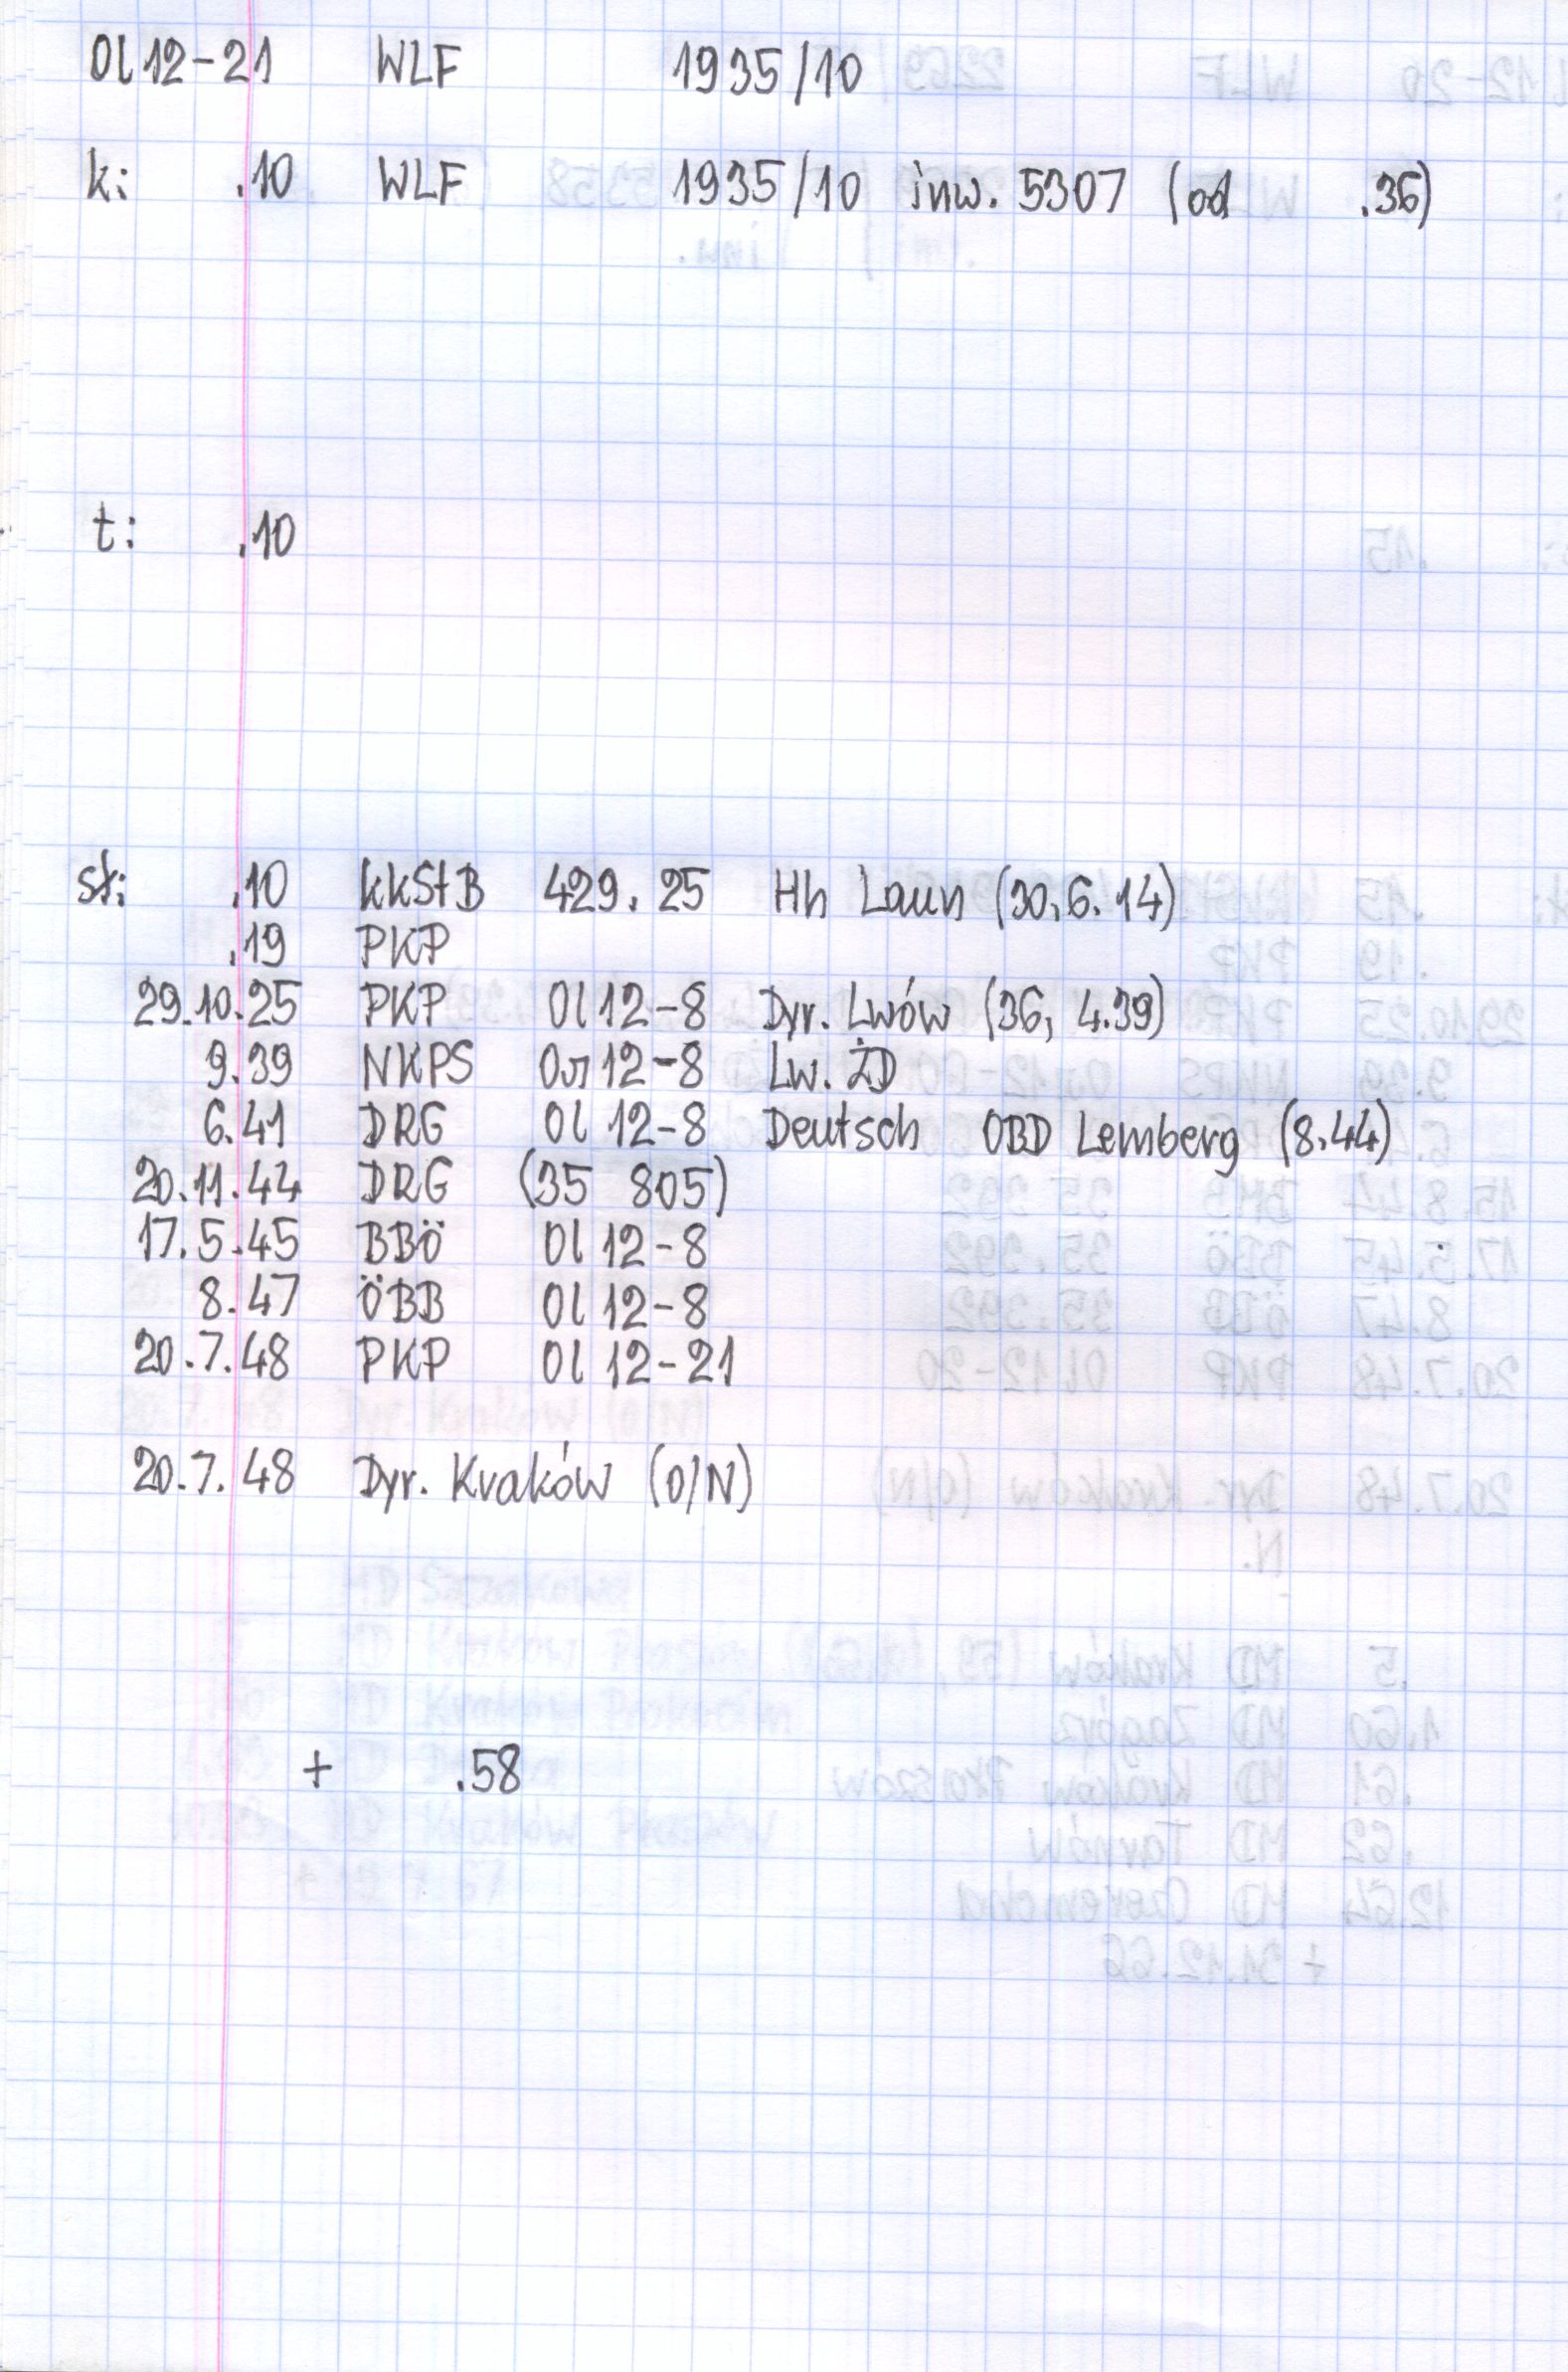 Ol12-21 WLF 1935/10
k: .10 WLF 1935/10 inw. 5307 (od .36)
t: .10
st: .10 kkStB 429.25 Hh Laun (30.6.14)
.19 PKP
29.10.25 PKP Ol12-8 Dyr. Lwów (36, 4.39)
9.39 NKPS Ол12-8 Lw. ŻD
6.41 DRG Ol 12-8 Deutsch OBD Lemberg (8.44)
20.11.44 DRG (35 805)
17.5.45 BBÖ Ol 12-8
8.47 ÖBB Ol 12-8
20.7.48 PKP Ol 12-21
20.7.48 Dyr. Kraków (O/N)
+ .58